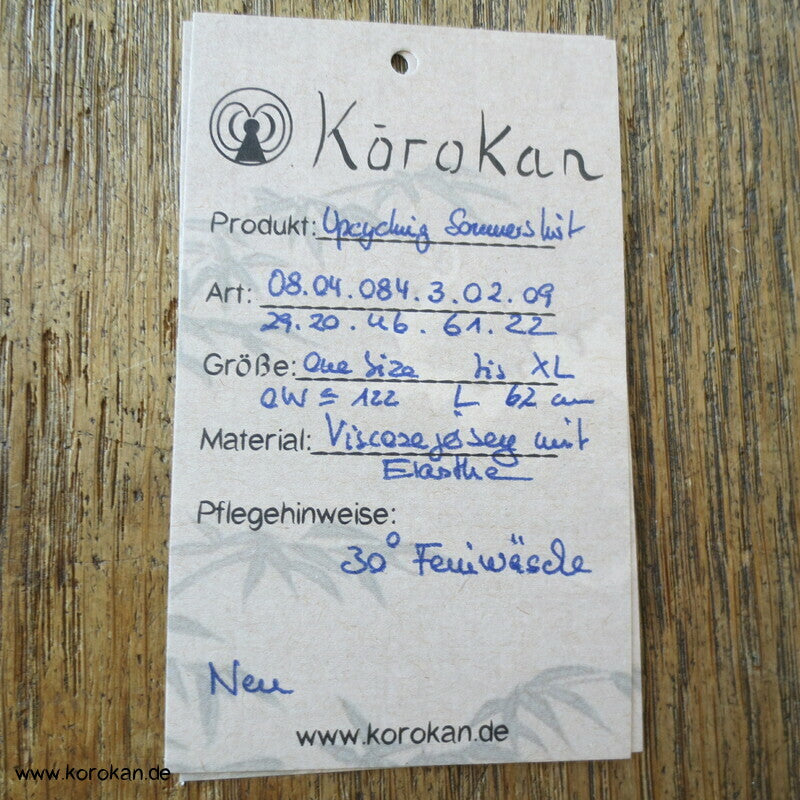 Kōrokan
Produkt: Upcycling Sommershirt
Art: 08.04.084.3.02.09
29.20.46.61.22
Größe: One Size bis XL
OW ≤ 122 L 62 cm
Material: Viscosejersey mit
Elasthan
Pflegehinweise:
30° Feinwäsche
Neu
www.korokan.de
www.korokan.de